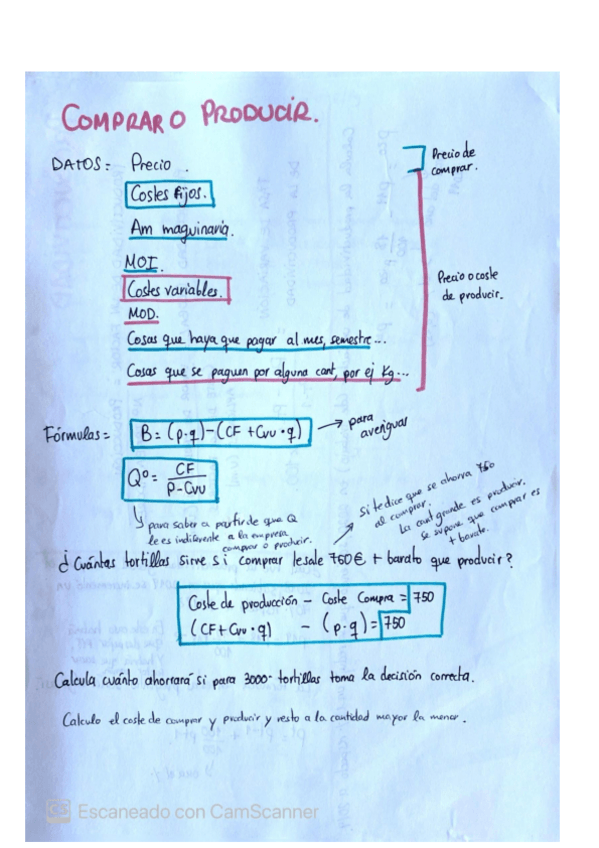 COMPRAR O PRODUCIR.
DATOS = Precio.
Precio de
comprar.
Costes fijos.
Am maquinaria.
MOI.
Costes variables.
Precio o coste
de producir.
MOD.
Cosas que haya que pagar al mes, semestre...
Cosas que se paguen por alguna cant, por ej Kg...
Fórmulas = B = (p·q) - (CF + Cvu · q) → para
averiguar
Qº = CF / P - Cvu
para saber a partir de que Q
le es indiferente a la empresa
comprar o producir.
si te dice que se ahorra 750
al comprar.
La cant grande es producir.
se supone que comprar es
+ barato.
¿Cuántas tortillas sirve si comprar le sale 750€ + barato que producir?
Coste de producción - Coste Compra = 750
(CF + Cvu · q) - (p·q) = 750
Calcula cuánto ahorrará si para 3000 tortillas toma la decisión correcta.
Calculo el coste de comprar y producir y resto a la cantidad mayor la menor.
CS Escaneado con CamScanner